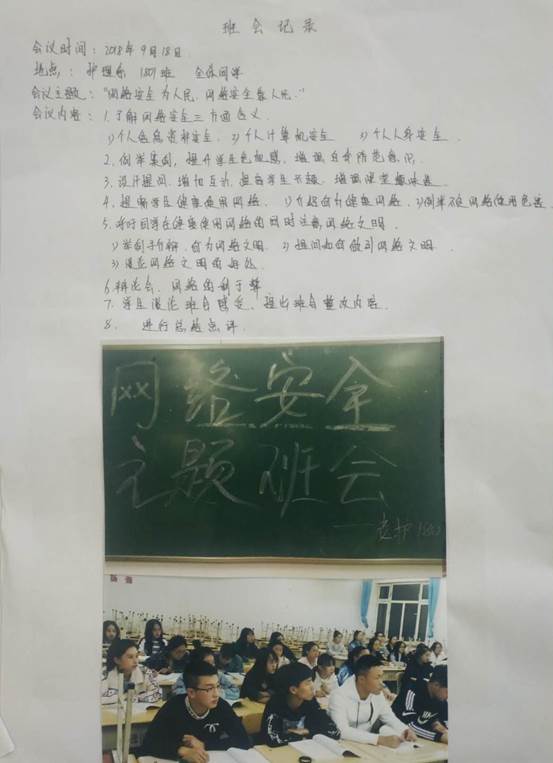 班会记录
会议时间：2018年9月18日
地点：护理系 1801班 全体同学
会议主题："网络安全为人民，网络安全靠人民."
会议内容：1.了解网络安全三方面含义.
1)个人信息资料安全. 2)个人计算机安全 3)个人人身安全.
2.例举案例，提升学生危机感，增强自我防范意识.
3.设计提问，增加互动，提高学生兴趣，增强课堂趣味性
4.提醒学生健康使用网络. 1)介绍何为健康网络. 2)例举不健康网络使用危害
5.探讨同学在健康使用网络的同时注意网络文明.
1)举例子介绍，何为网络文明. 2)提问如何做到网络文明.
3)谈论网络文明的好处.
6.辩论会，网络的利于弊
7.学生谈论班会感受，提出班会整改内容.
8. 进行总结点评.
网络安全
主题班会
护1801